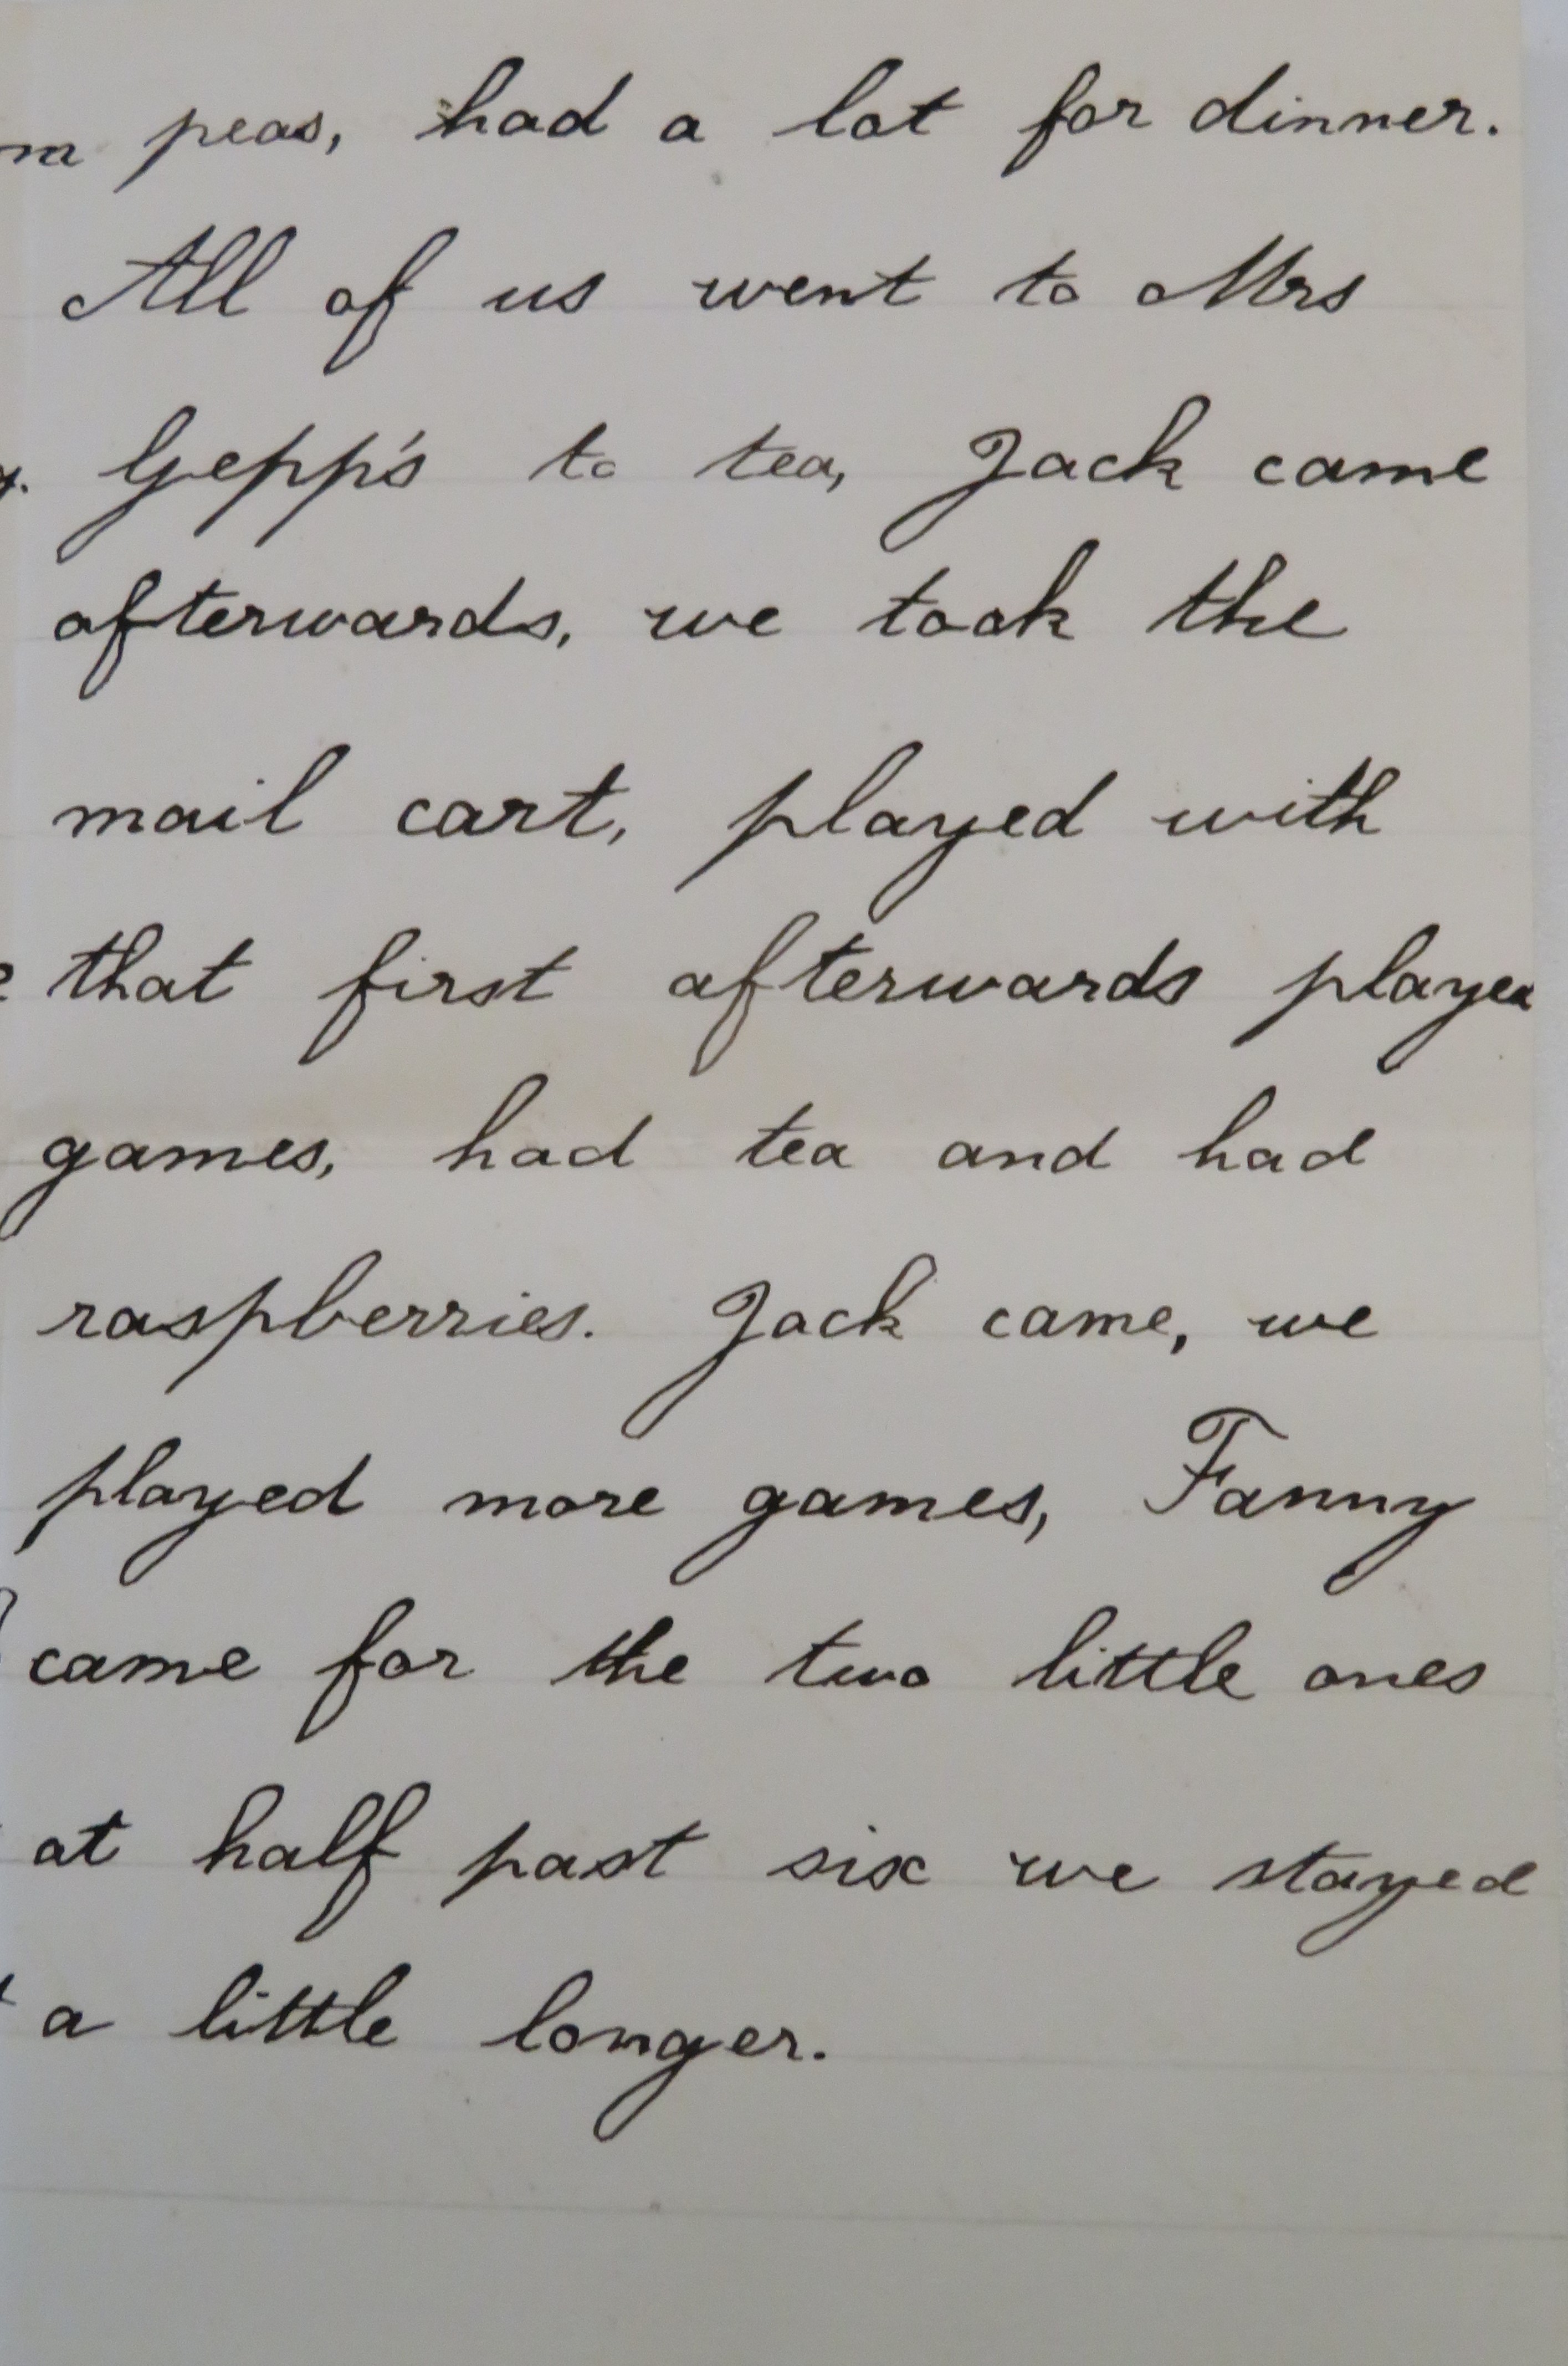 peas, had a lot for dinner.
All of us went to Mrs
Gepp's to tea, Jack came
afterwards, we took the
mail cart, played with
that first afterwards played
games, had tea and had
raspberries. Jack came, we
played more games, Fanny
came for the two little ones
at half past six we stayed
a little longer.